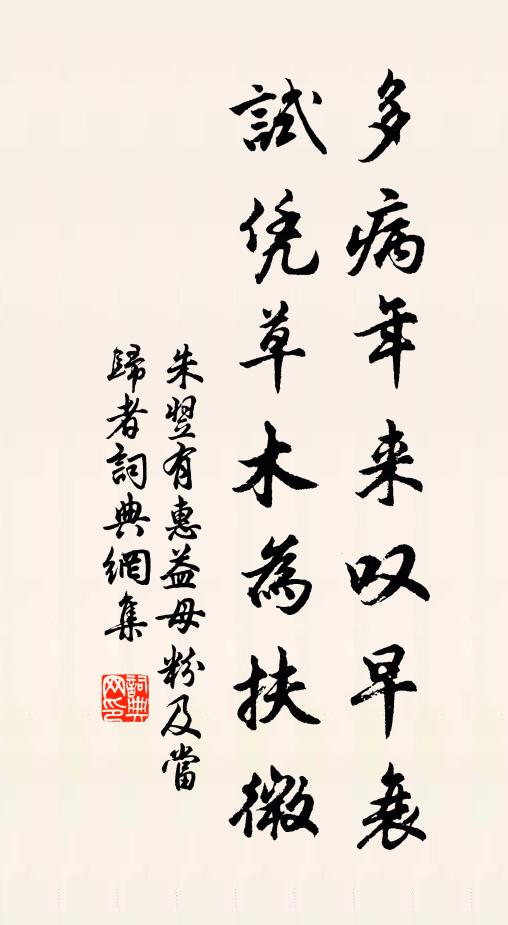 多病年来叹早衰
試凭草木為扶微
朱翌有惠益母粉及當
歸者詞典網集
詞典网印